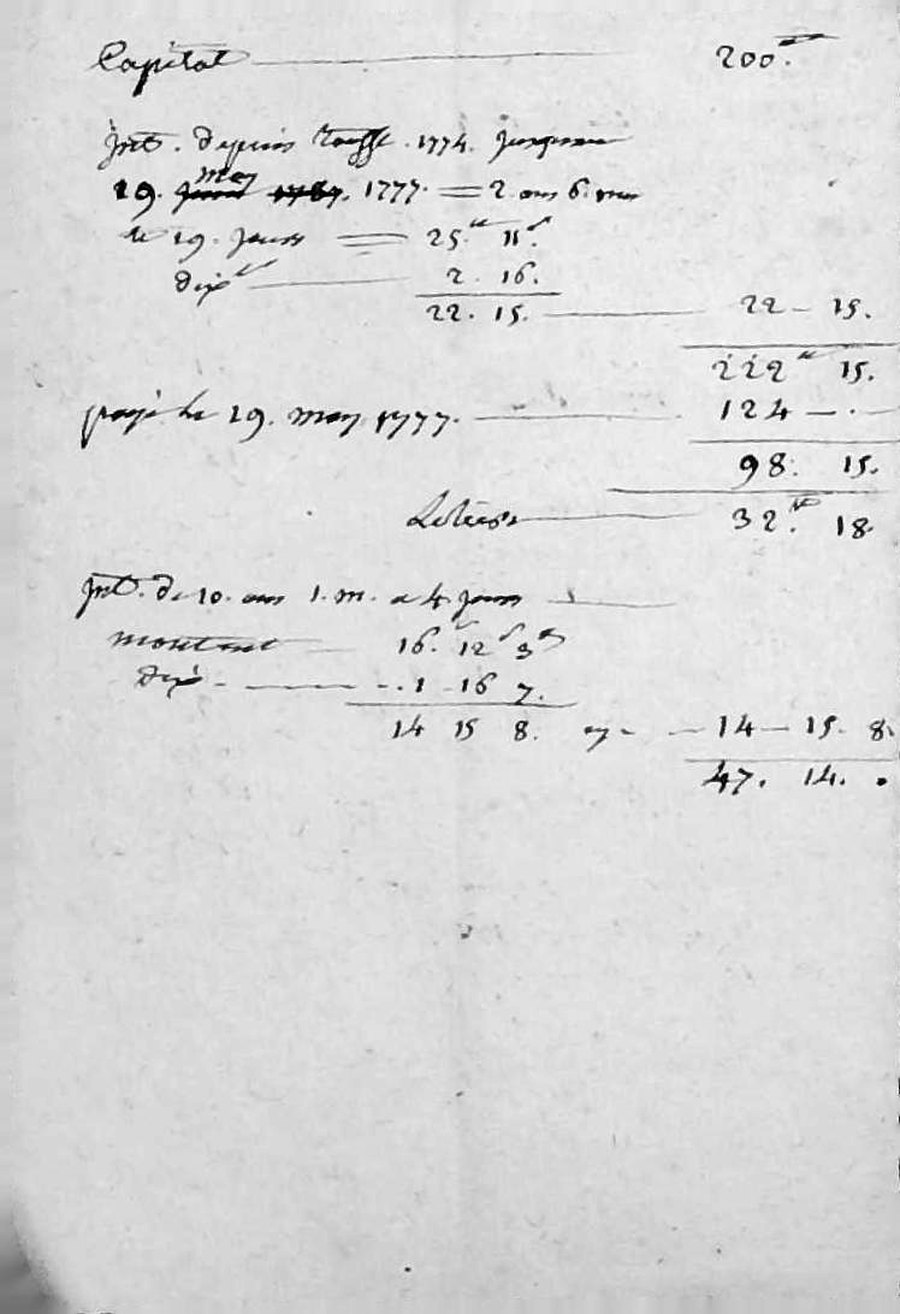 Capital — 200.
Jnt. depuis Touss. 1774. jusques au
may
19. 1777. = 2. ans 6. mois
et 19. jours = 25. 11.
dixe — 2. 16.
22. 15. — 22 - 15.
222 15.
payé le 19. may 1777. — 124 — . —
98. 15.
Le tiers — 32. 18.
Jnt. de 10. ans 1. m. & 4 jours —
montent — 16. 12 3
dixe — 1 - 16 7.
14 15 8. cy - — 14 — 15. 8.
47. 14. .